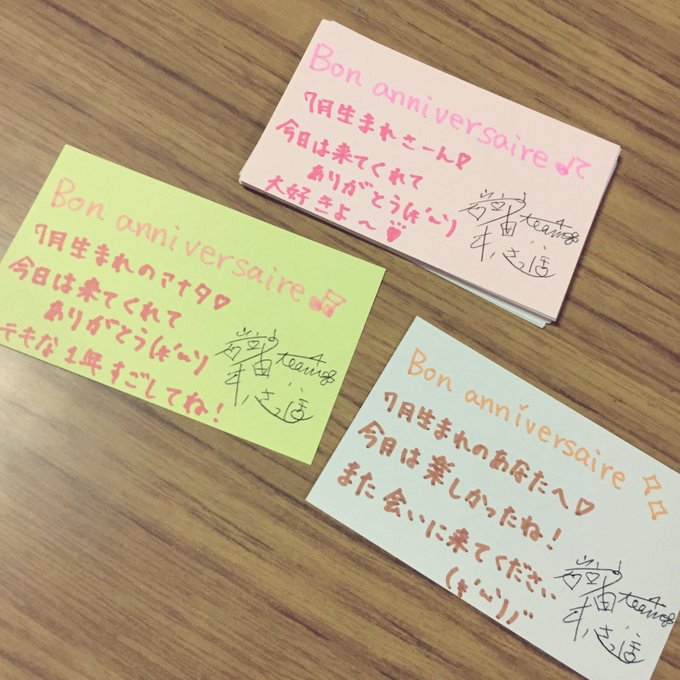 Bon anniversaire ♫
7月生まれさーん♡
今日は来てくれて
ありがとう(ˊᵕˋ)
大好きよ〜♡
Bon anniversaire ♫
7月生まれのアナタ♡
今日は来てくれて
ありがとう(ˊᵕˋ)
テキな1年すごしてね!
Bon anniversaire
7月生まれのあなたへ♡
今日は楽しかったね!
また会いに来てください
(ˊᵕˋ)ノ